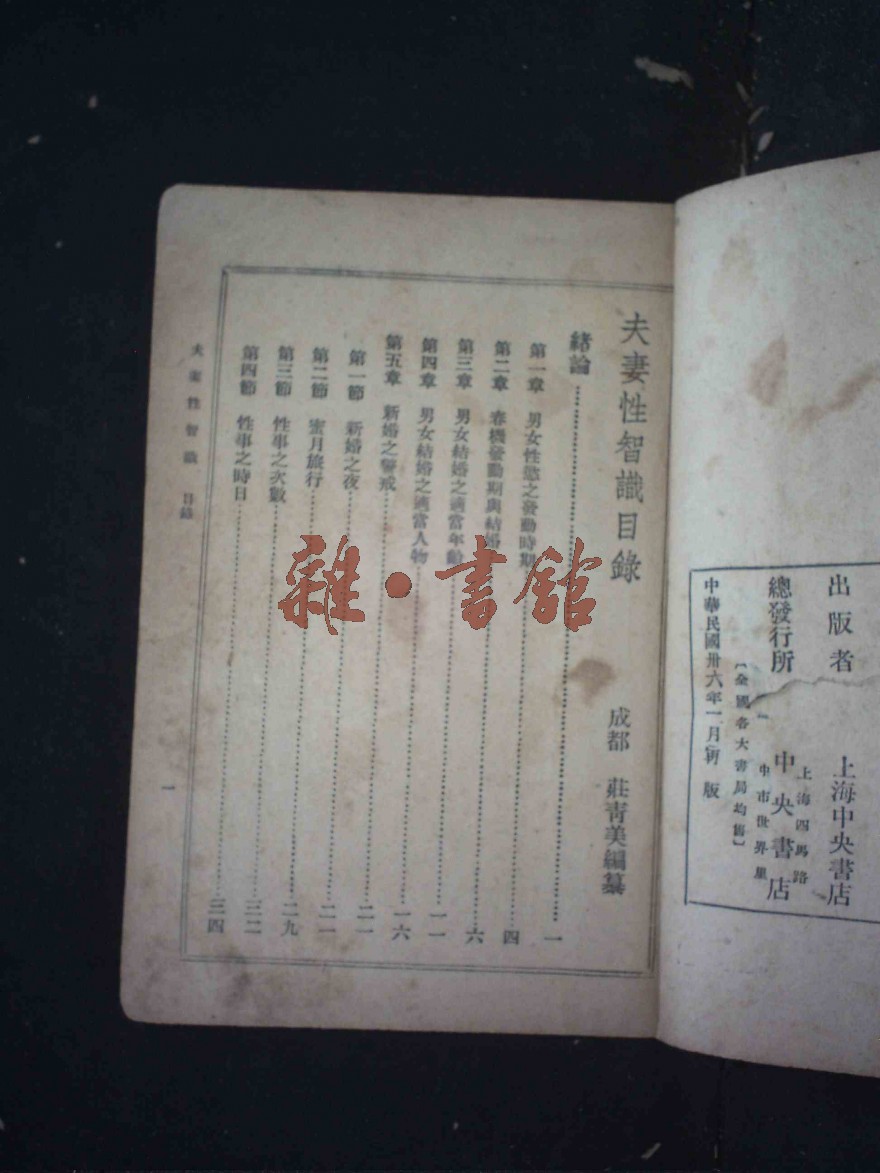 出版者　上海中央書店
總發行所　中央書店
上海四馬路
中市世界里
〔全國各大書局均售〕
中華民國卅六年二月新版
夫妻性智識目錄
成都　莊青美編纂
緒論…一
第一章　男女性慾之發動時期…四
第二章　春機發動期與結婚…六
第三章　男女結婚之適當年齡…一一
第四章　男女結婚之適當人物…一六
第五章　新婚之警戒…二一
第一節　新婚之夜…二一
第二節　蜜月旅行…二九
第三節　性事之次數…三二
第四節　性事之時日…三四
夫妻性智識　目錄
一
雜·書館